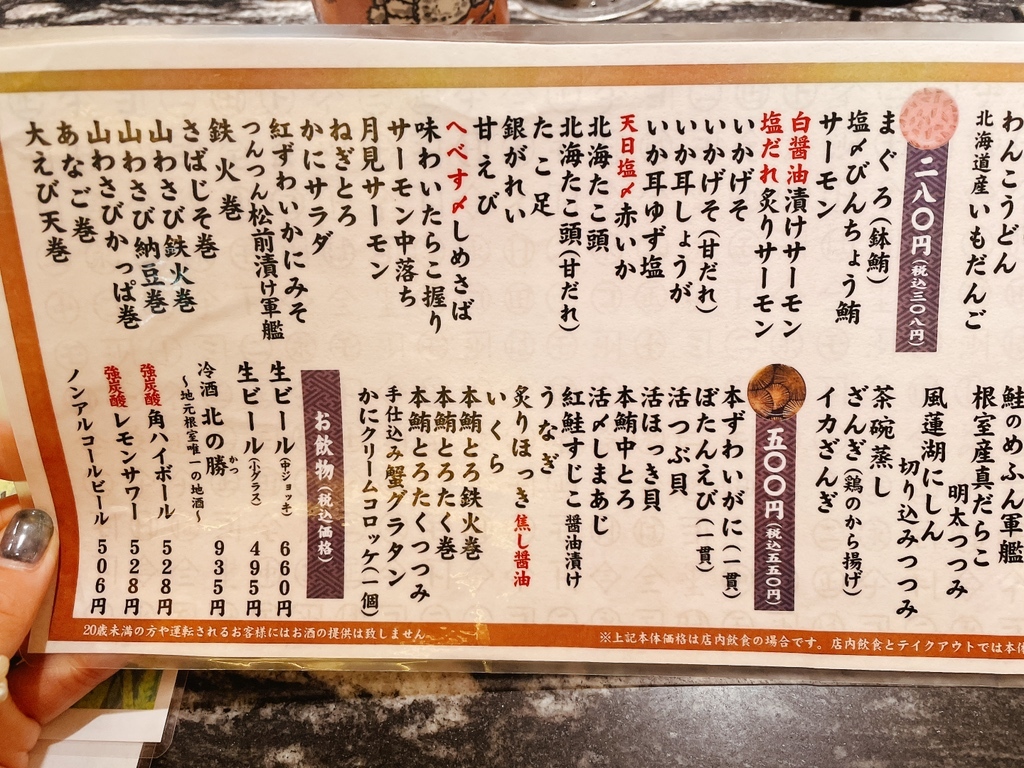 わんこうどん
北海道産いもだんご
二八〇円(税込三〇八円)
まぐろ(鉢鮪)
塩〆びんちょう鮪
サーモン
白醤油漬けサーモン
塩だれ炙りサーモン
いかげそ
いかげそ(甘だれ)
いか耳しょうが
いか耳ゆず塩
天日塩〆赤いか
北海たこ頭
北海たこ頭(甘だれ)
たこ足
銀がれい
甘えび
へべす〆しめさば
味わいたらこ握り
サーモン中落ち
月見サーモン
ねぎとろ
かにサラダ
紅ずわいかにみそ
つんつん松前漬け軍艦
鉄火巻
さばじそ巻
山わさび鉄火巻
山わさび納豆巻
山わさびかっぱ巻
あなご巻
大えび天巻
鮭のめふん軍艦
根室産真だらこ
明太つつみ
風蓮湖にしん
切り込みつつみ
茶碗蒸し
ざんぎ(鶏のから揚げ)
イカざんぎ
五〇〇円(税込五五〇円)
本ずわいがに(一貫)
ぼたんえび(一貫)
活つぶ貝
活ほっき貝
本鮪中とろ
活〆しまあじ
紅鮭すじこ醤油漬け
うなぎ
炙りほっき焦し醤油
いくら
本鮪とろ鉄火巻
本鮪とろたく巻
本鮪とろたくつつみ
手仕込み蟹グラタン
かにクリームコロッケ(一個)
お飲物(税込価格)
生ビール(中ジョッキ) 660円
生ビール(小グラス) 495円
冷酒 北の勝 935円
かつ
〜地元根室唯一の地酒〜
強炭酸 角ハイボール 528円
強炭酸 レモンサワー 528円
ノンアルコールビール 506円
20歳未満の方や運転されるお客様にはお酒の提供は致しません
※上記本体価格は店内飲食の場合です。店内飲食とテイクアウトでは本体